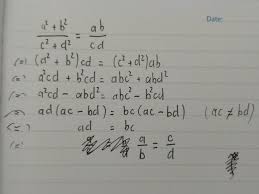 Date:
a² + b² / c² + d² = ab / cd
(=) (a² + b²) cd = (c² + d²) ab
(=) a²cd + b²cd = abc² + abd²
(=) a²cd - abd² = abc² - b²cd
(=) ad (ac - bd) = bc (ac - bd) (ac ≠ bd)
(=) ad = bc
(=) a / b = c / d